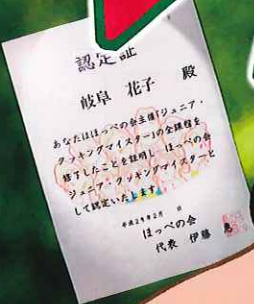 認定証
岐阜 花子 殿
あなたはほっぺの会主催「ジュニア・
クッキングマイスター」の全課程を
修了したことを証明し、ほっぺの会
ジュニア・クッキングマイスターと
して認定いたします。
平成29年2月 日
ほっぺの会
代表 伊藤 恵